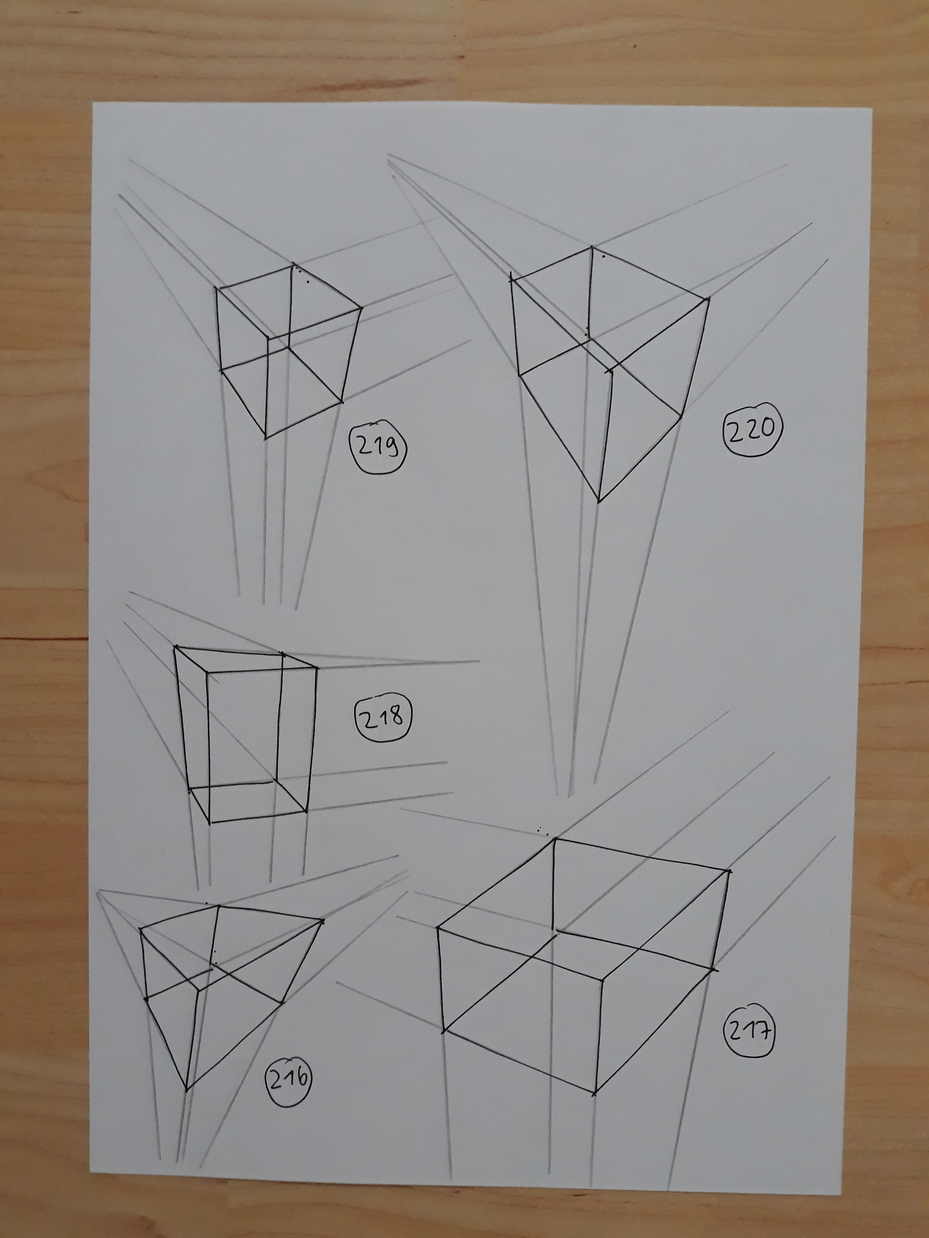 219
220
218
216
217